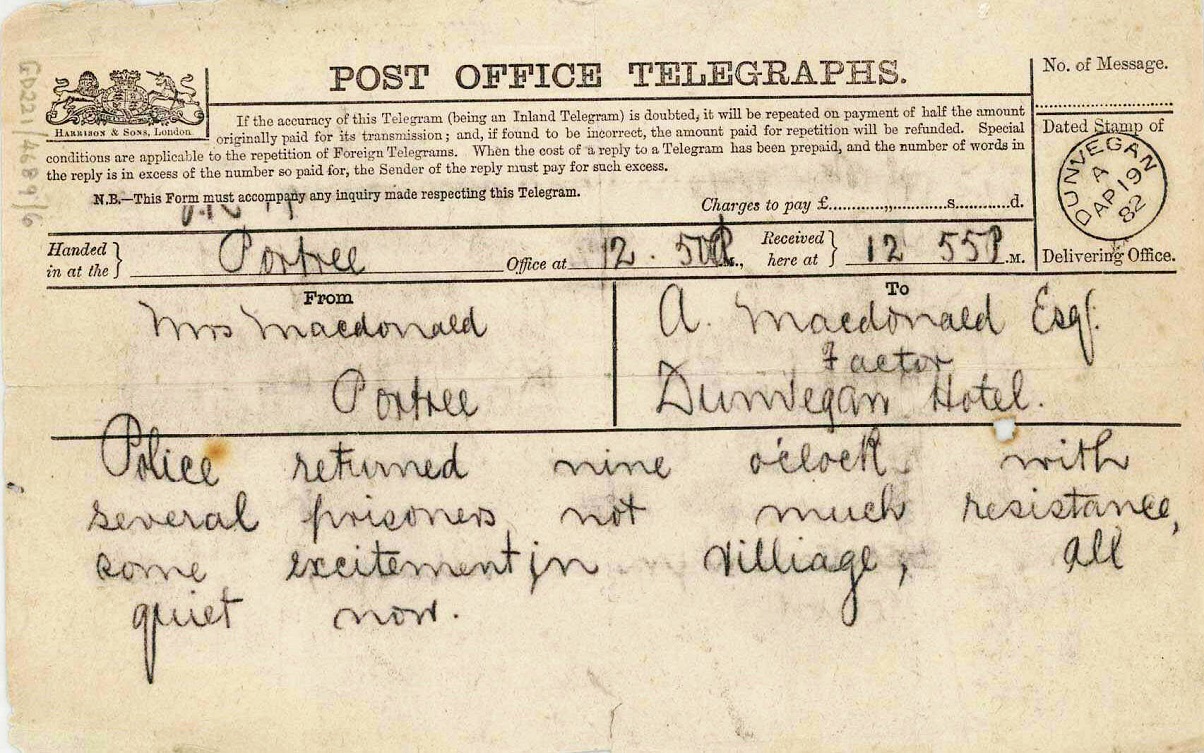 POST OFFICE TELEGRAPHS.
HARRISON & SONS, London
If the accuracy of this Telegram (being an Inland Telegram) is doubted, it will be repeated on payment of half the amount
originally paid for its transmission; and, if found to be incorrect, the amount paid for repetition will be refunded. Special
conditions are applicable to the repetition of Foreign Telegrams. When the cost of a reply to a Telegram has been prepaid, and the number of words in
the reply is in excess of the number so paid for, the Sender of the reply must pay for such excess.
N.B.—This Form must accompany any inquiry made respecting this Telegram.
Charges to pay £..........,,..........s..........d.
No. of Message.
Dated Stamp of
DUNVEGAN
A
AP 19
82
Delivering Office.
Handed in at the } Portree Office at 12. 50 P.M., Received here at } 12 55 P.M.
From
Mrs Macdonald
Portree
To
A. Macdonald Esqr.
Factor
Dunvegan Hotel.
Police returned nine o'clock with
several prisoners not much resistance,
some excitement, in villiage, all
quiet now.
GD221/4689/6